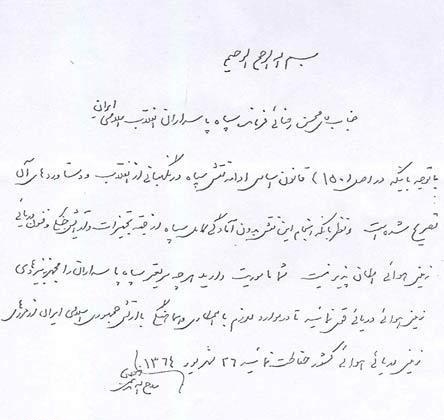 بسم الله الرحمن الرحیم
جناب آقای محسن رضائی فرمانده سپاه پاسداران انقلاب اسلامی ایران
باتوجه باینکه در اصل (۱۵۰) قانون اساسی ادامه نقش سپاه در نگهبانی از انقلاب و دستاوردهای آن
تصریح شده است و نظر باینکه انجام این نقش بدون آمادگی کامل سپاه از جهت تجهیزات و فنون دریائی
زمینی هوائی امکان پذیر نیست شما ماموریت دارید هر چه سریعتر سپاه پاسداران را مجهز به نیروهای
زمینی هوائی دریائی قوی نمائید تا در موارد لازم با هماهنگی با ارتش جمهوری اسلامی ایران از مرزهای
زمینی دریائی هوائی کشور حفاظت نمائید ۲۶ شهریور ۱۳۶۴
روح الله الموسوی الخمینی